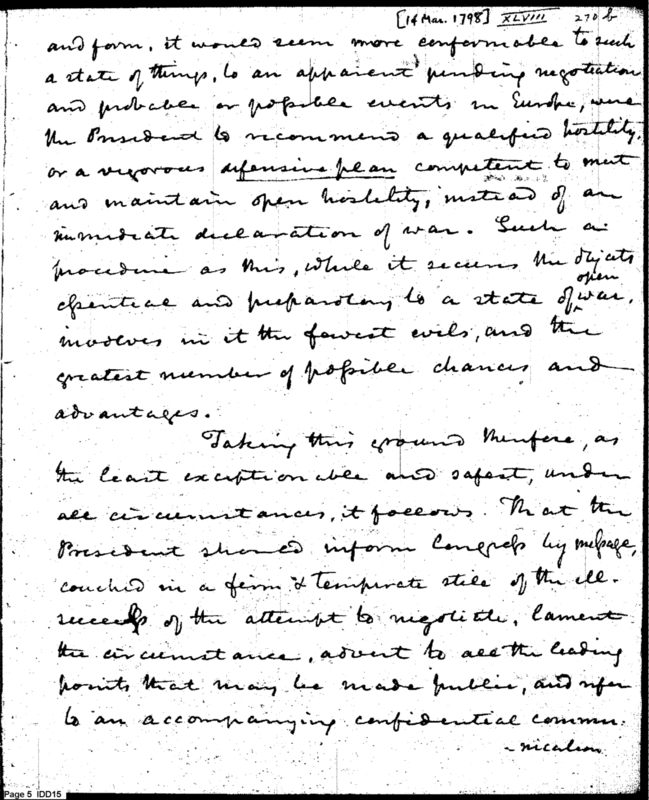 [14 Mar. 1798] XLVIII 270 b
and form, it would seem more conformable to such
a state of things, to an apparent pending negotiation
and probable or possible events in Europe, were
the President to recommend a qualified hostility,
or a vigorous defensive plan competent to meet
and maintain open hostility, instead of an
immediate declaration of war. Such a
procedure as this, while it secures the objects
essential and preparatory to a state of open war,
involves in it the fewest evils, and the
greatest number of possible chances and
advantages.
Taking this ground therefore, as
the least exceptionable and safest, under
all circumstances, it follows. That the
President should inform Congress by message,
couched in a firm & temperate stile of the ill-
success of the attempt to negotiate, lament
the circumstance, advert to all the leading
points that may be made public, and refer
to an accompanying confidential commu-
-nication
Page 5 IDD15